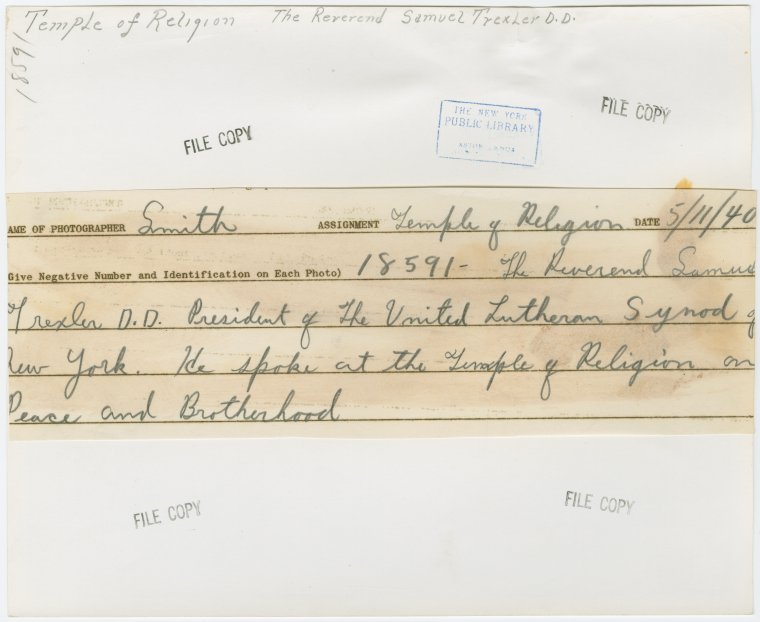 Temple of Religion The Reverend Samuel Trexler D.D.
18591
FILE COPY
THE NEW YORK
PUBLIC LIBRARY
FILE COPY
AME OF PHOTOGRAPHER Smith ASSIGNMENT Temple of Religion DATE 5/11/40
Give Negative Number and Identification on Each Photo) 18591- The Reverend Samue
Trexler D.D. President of The United Lutheran Synod of
New York. He spoke at the Temple of Religion on
Peace and Brotherhood
FILE COPY
FILE COPY